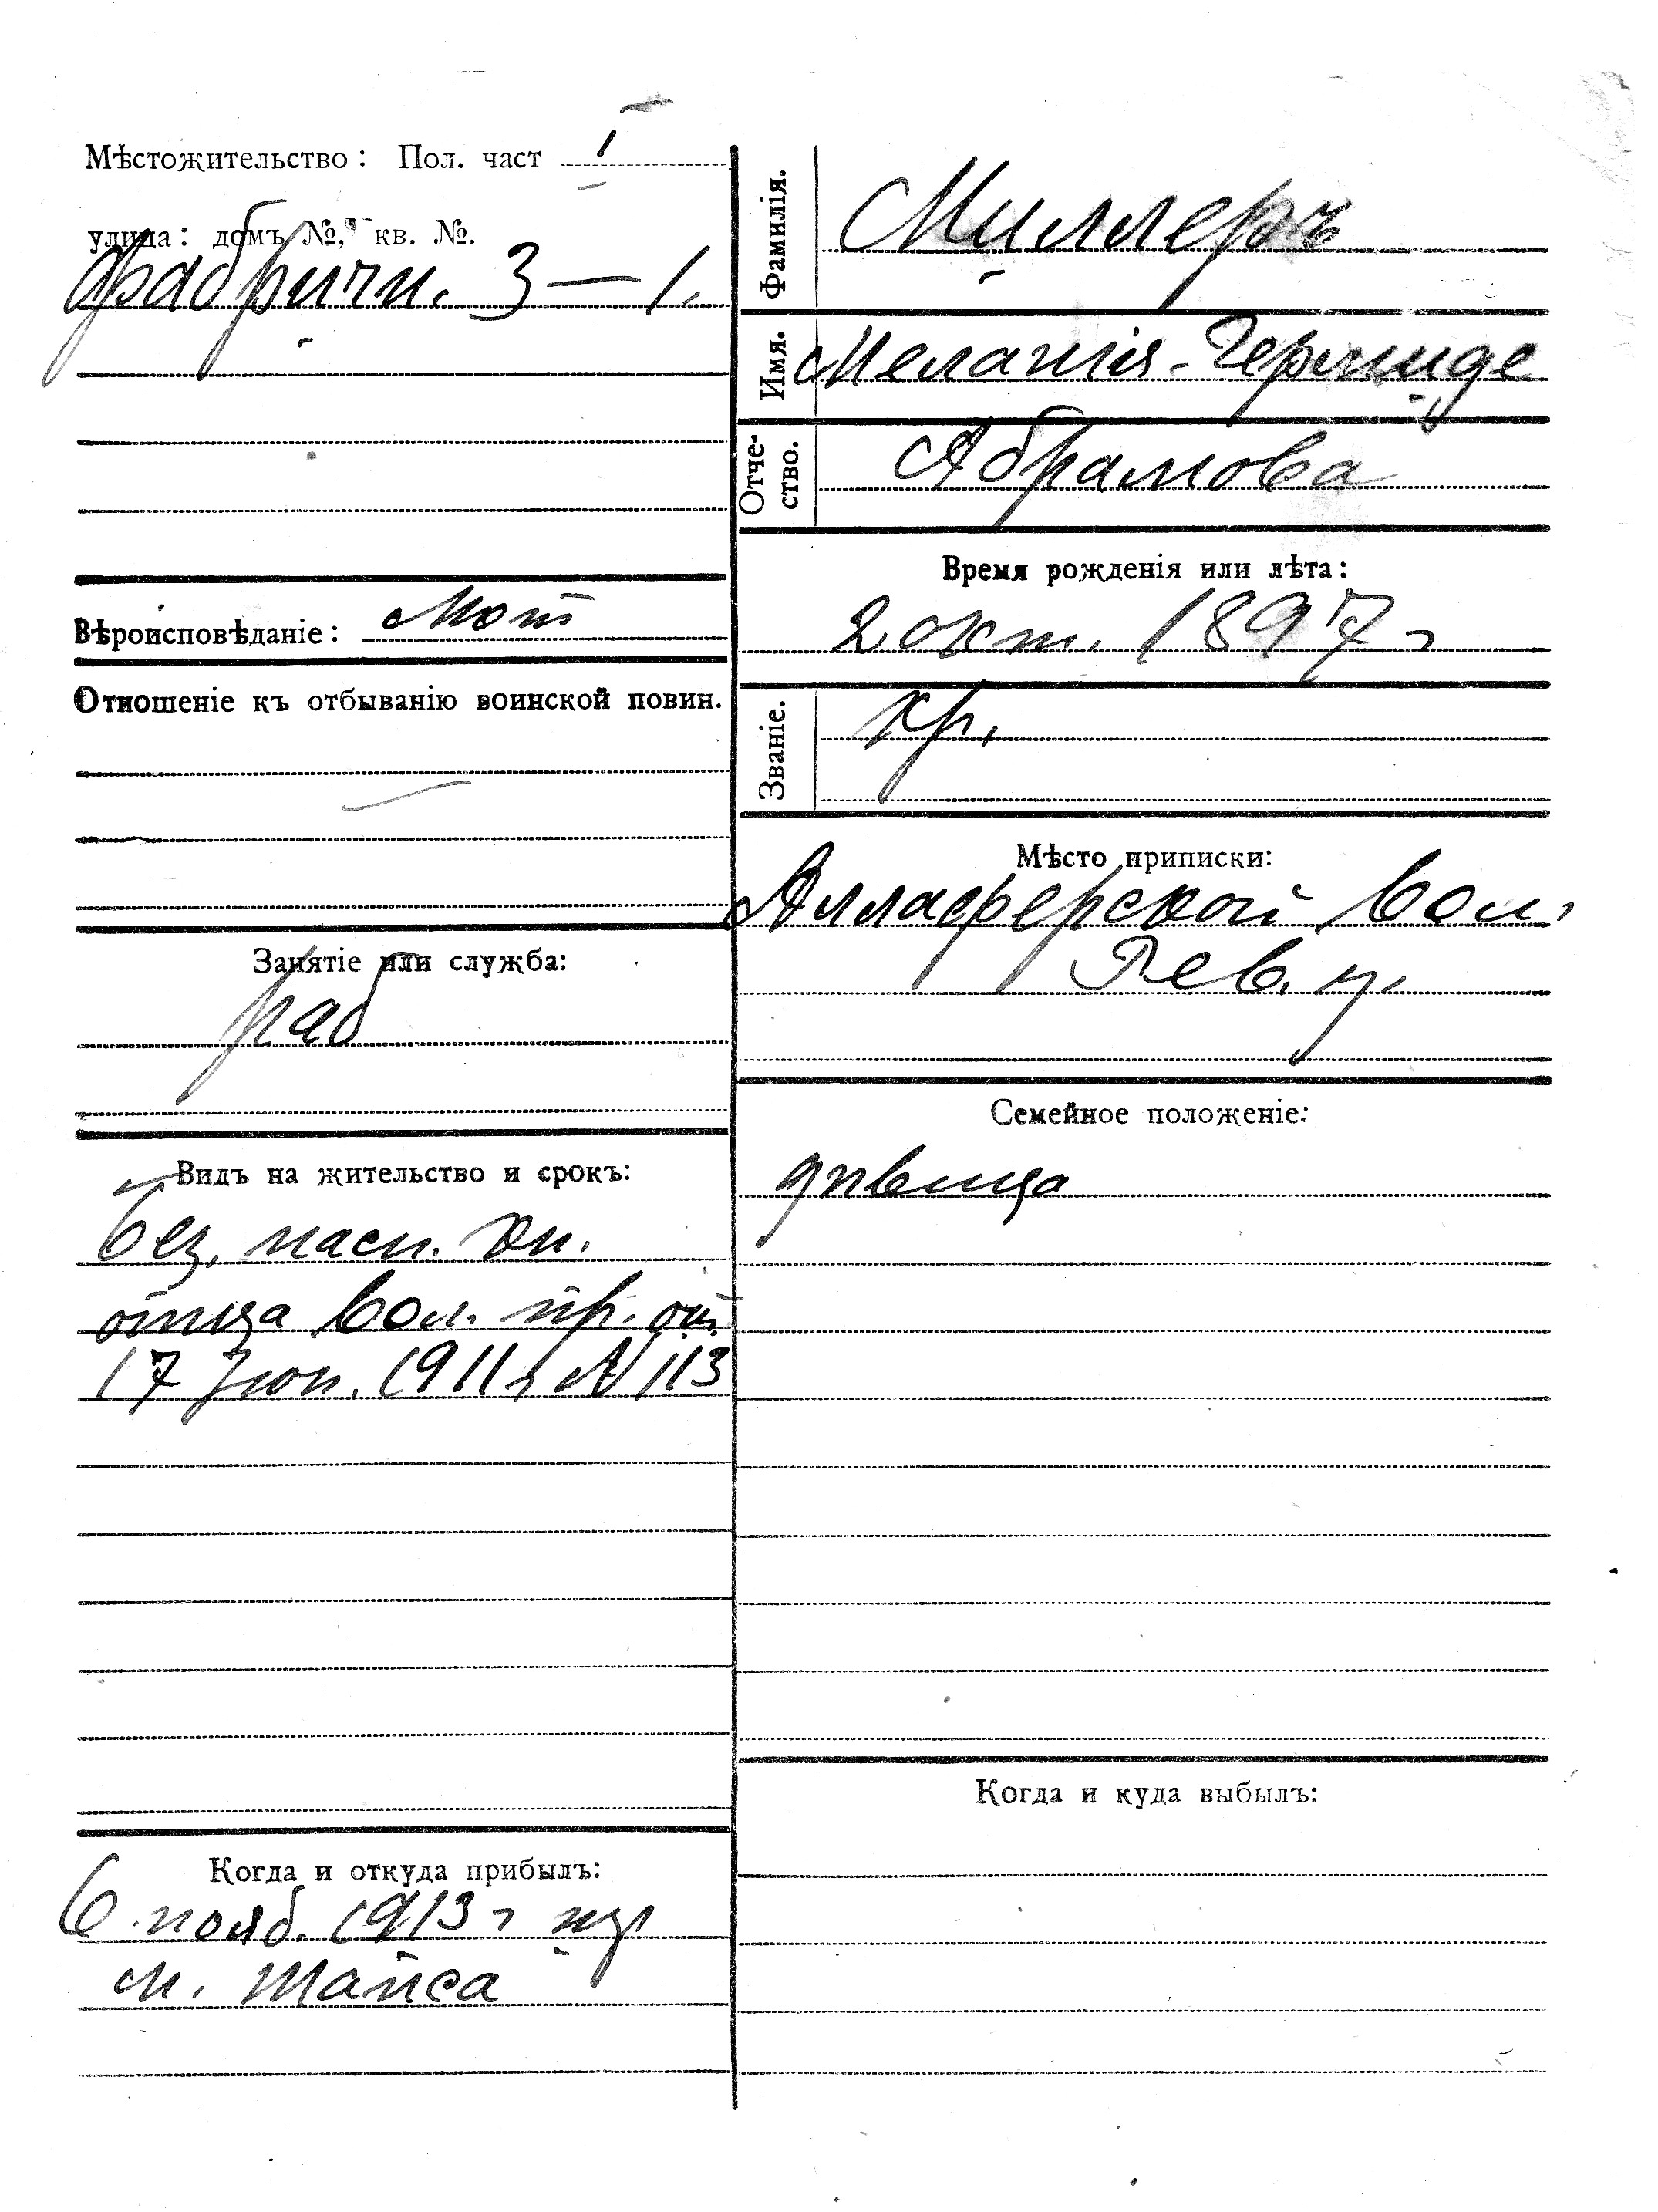 Мѣстожительство: Пол. част I
улица: домъ №, кв. №.
Фабричн. 3 — 1.
Вѣроисповѣданіе: Лют
Отношеніе къ отбыванію воинской повин.
Занятіе или служба:
раб
Видъ на жительство и срокъ:
без. пасп. кн.
отца вол. пр. от.
17 Іюн. 1911 г N 113
Когда и откуда прибылъ:
6 нояб. 1913 г из
м. Тайса
Фамилія. Миллеръ
Имя. Меланія-Гермиде
Отче-
ство. Абрамова
Время рожденія или лѣта:
2 окт. 1897 г
Званіе. кр.
Мѣсто приписки:
Аллаферской вол.
Рев. у.
Семейное положеніе:
дѣвица
Когда и куда выбылъ: